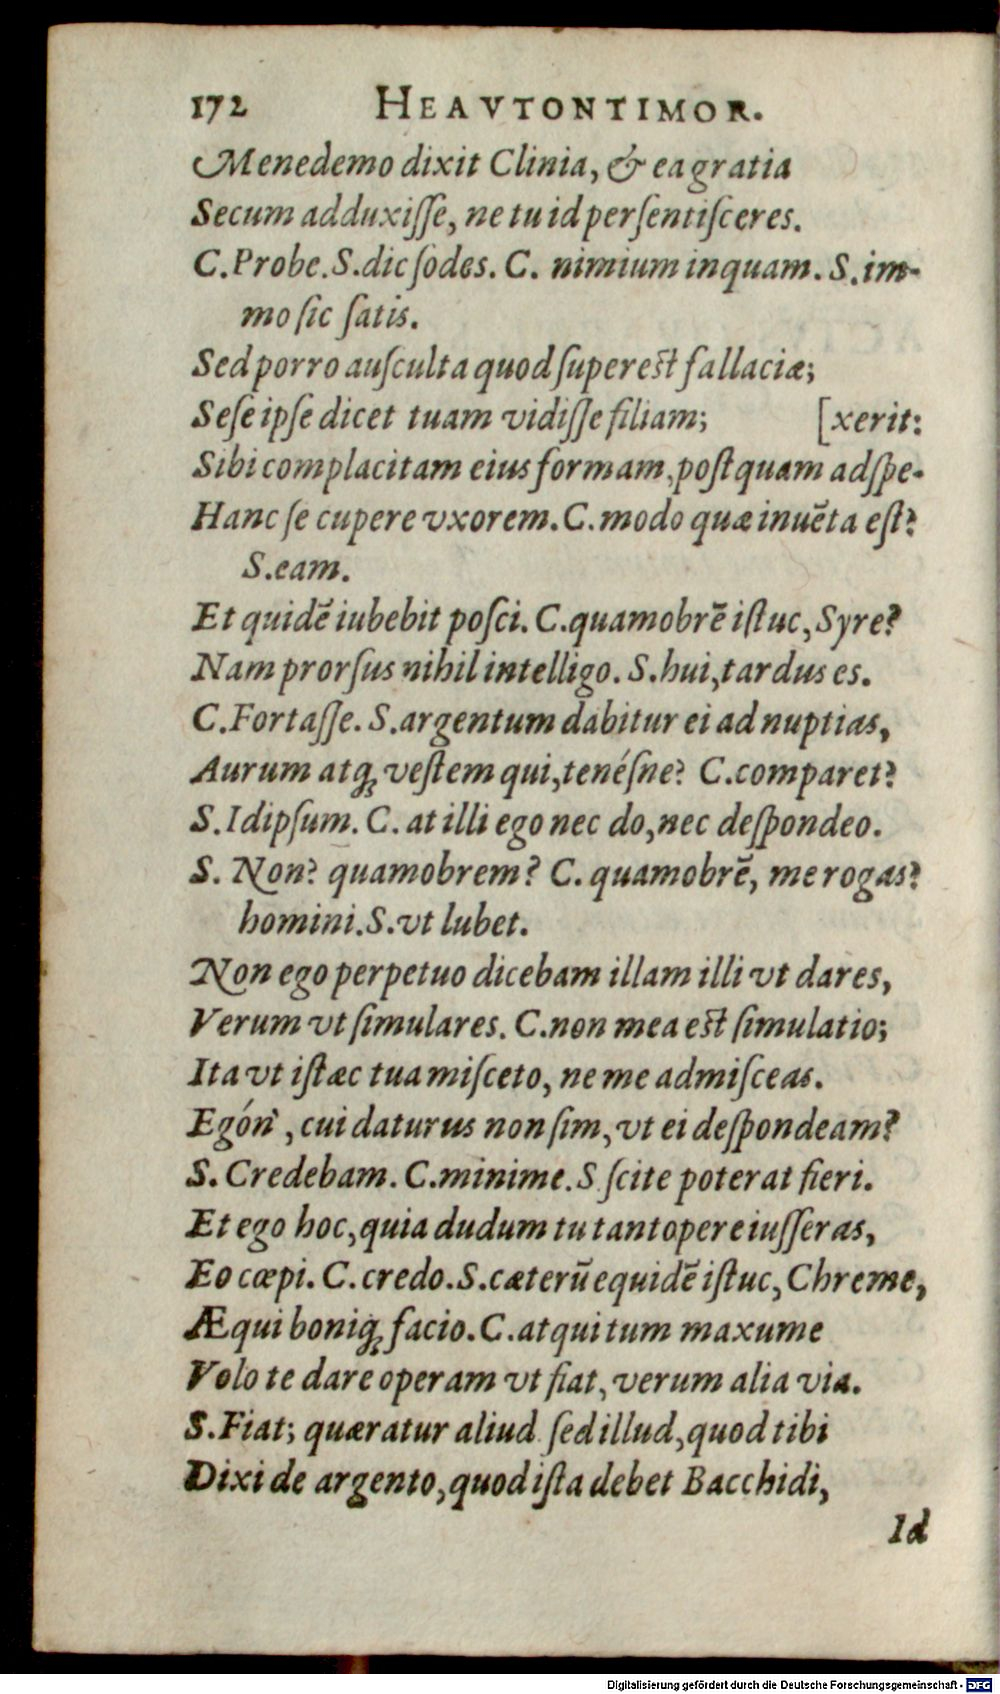 172 HEAVTONTIMOR.
Menedemo dixit Clinia, & ea gratia
Secum adduxiſſe, ne tu id perſentiſceres.
C. Probe. S. dic ſodes. C. nimium inquam. S. im-
mo ſic ſatis.
Sed porro auſculta quod ſupereſt fallaciæ;
Seſe ipſe dicet tuam vidiſſe filiam; [xerit:
Sibi complacitam eius formam, poſtquam adſpe-
Hanc ſe cupere vxorem. C. modo quæ inuēta eſt?
S. eam.
Et quidē iubebit poſci. C. quamobrē iſtuc, Syre?
Nam prorſus nihil intelligo. S. hui, tardus es.
C. Fortaſſe. S. argentum dabitur ei ad nuptias,
Aurum atq; veſtem qui, tenéſne? C. comparet?
S. Idipſum. C. at illi ego nec do, nec deſpondeo.
S. Non? quamobrem? C. quamobrē, me rogas?
homini. S. vt lubet.
Non ego perpetuo dicebam illam illi vt dares,
Verum vt ſimulares. C. non mea eſt ſimulatio;
Ita vt iſtæc tua miſceto, ne me admiſceas.
Egón', cui daturus non ſim, vt ei deſpondeam?
S. Credebam. C. minime. S ſcite poterat fieri.
Et ego hoc, quia dudum tu tantopere iuſſeras,
Eo cœpi. C. credo. S. cæterū equidē iſtuc, Chreme,
Æqui boniq; facio. C. atqui tum maxume
Volo te dare operam vt fiat, verum alia via.
S. Fiat; quæratur aliud ſed illud, quod tibi
Dixi de argento, quod iſta debet Bacchidi,
Id
Digitalisierung gefördert durch die Deutsche Forschungsgemeinschaft - DFG